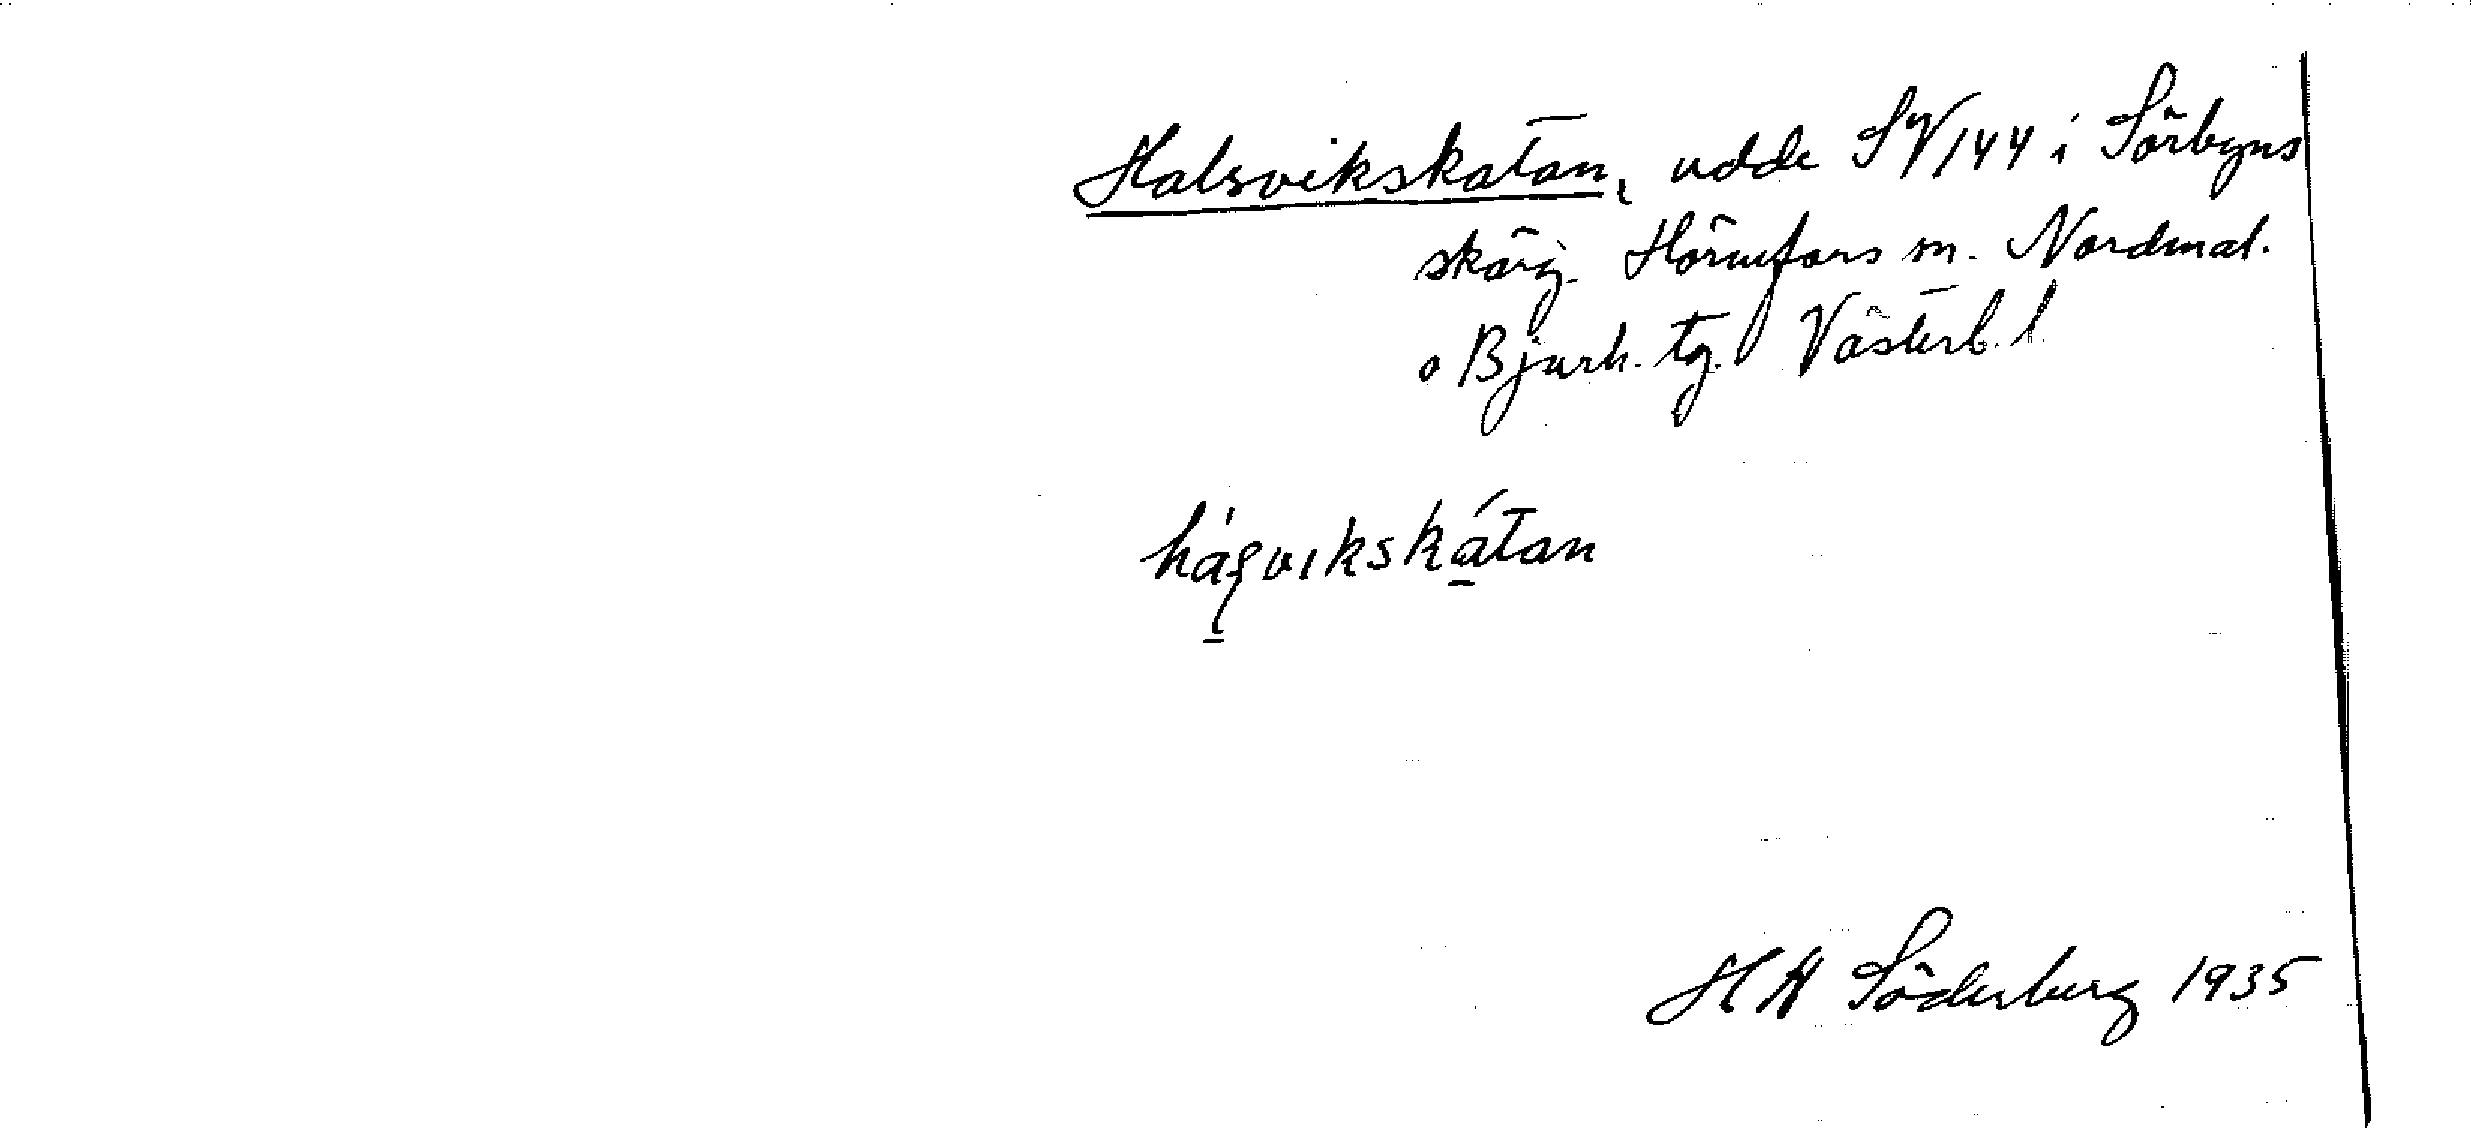 Halsvikskatan, udde SV/44 i Sörbyns
skärg. Hörnefors sn. Nordmal.
o Bjurh. tg. Västerb. l
hásvikskátan
H H Söderberg 1935